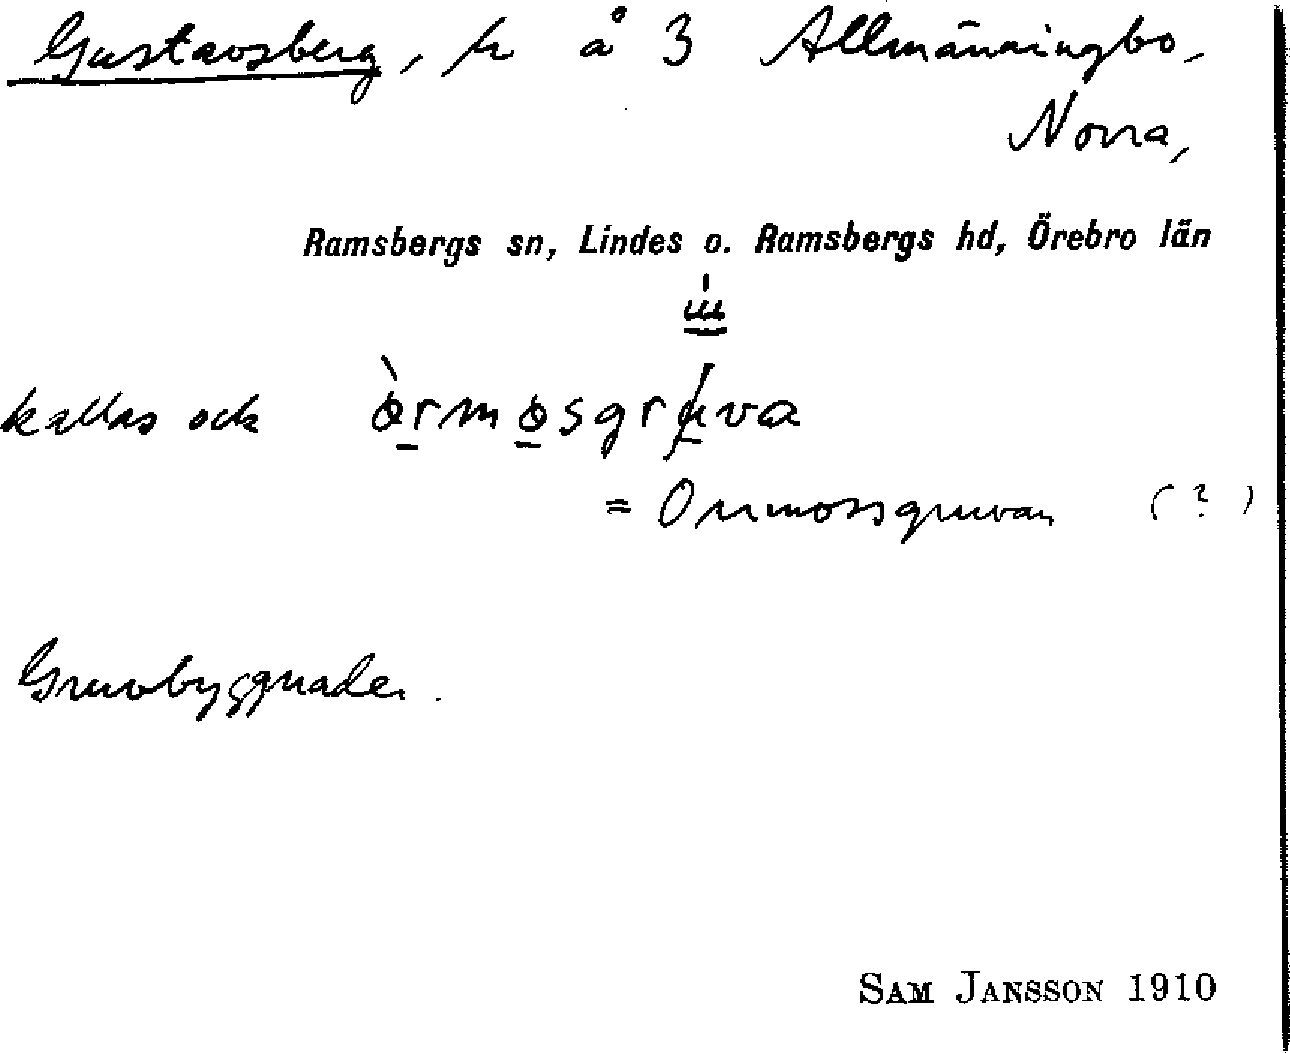 Gustavsberg, h å 3 Allmänningbo,
Norra,
Ramsbergs sn, Lindes o. Ramsbergs hd, Örebro län
kallas ock
= Ormmossgruvan (?)
Gruvbyggnader.
SAM JANSSON 1910